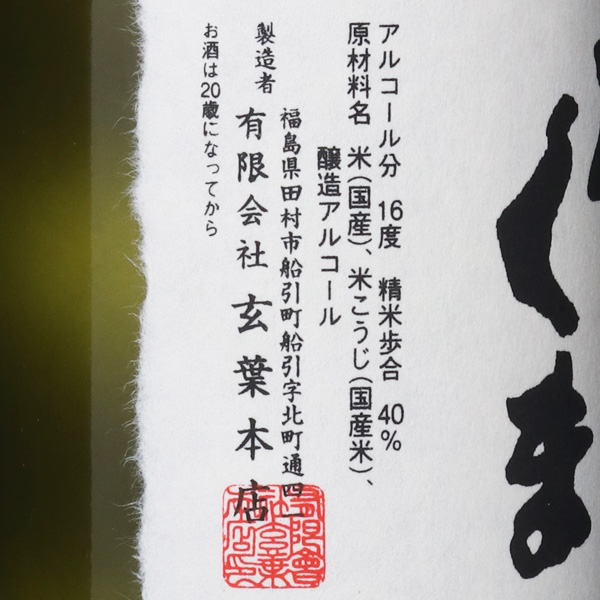 くま
アルコール分 16度 精米歩合 40%
原材料名 米(国産)、米こうじ(国産米)、
醸造アルコール
福島県田村市船引町船引字北町通四一
製造者 有限会社 玄葉本店
お酒は20歳になってから